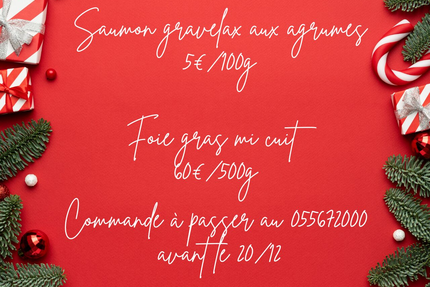 Saumon gravelax aux agrumes
5€/100g
Foie gras mi cuit
60€/500g
Commande à passer au 055672000
avant le 20/12